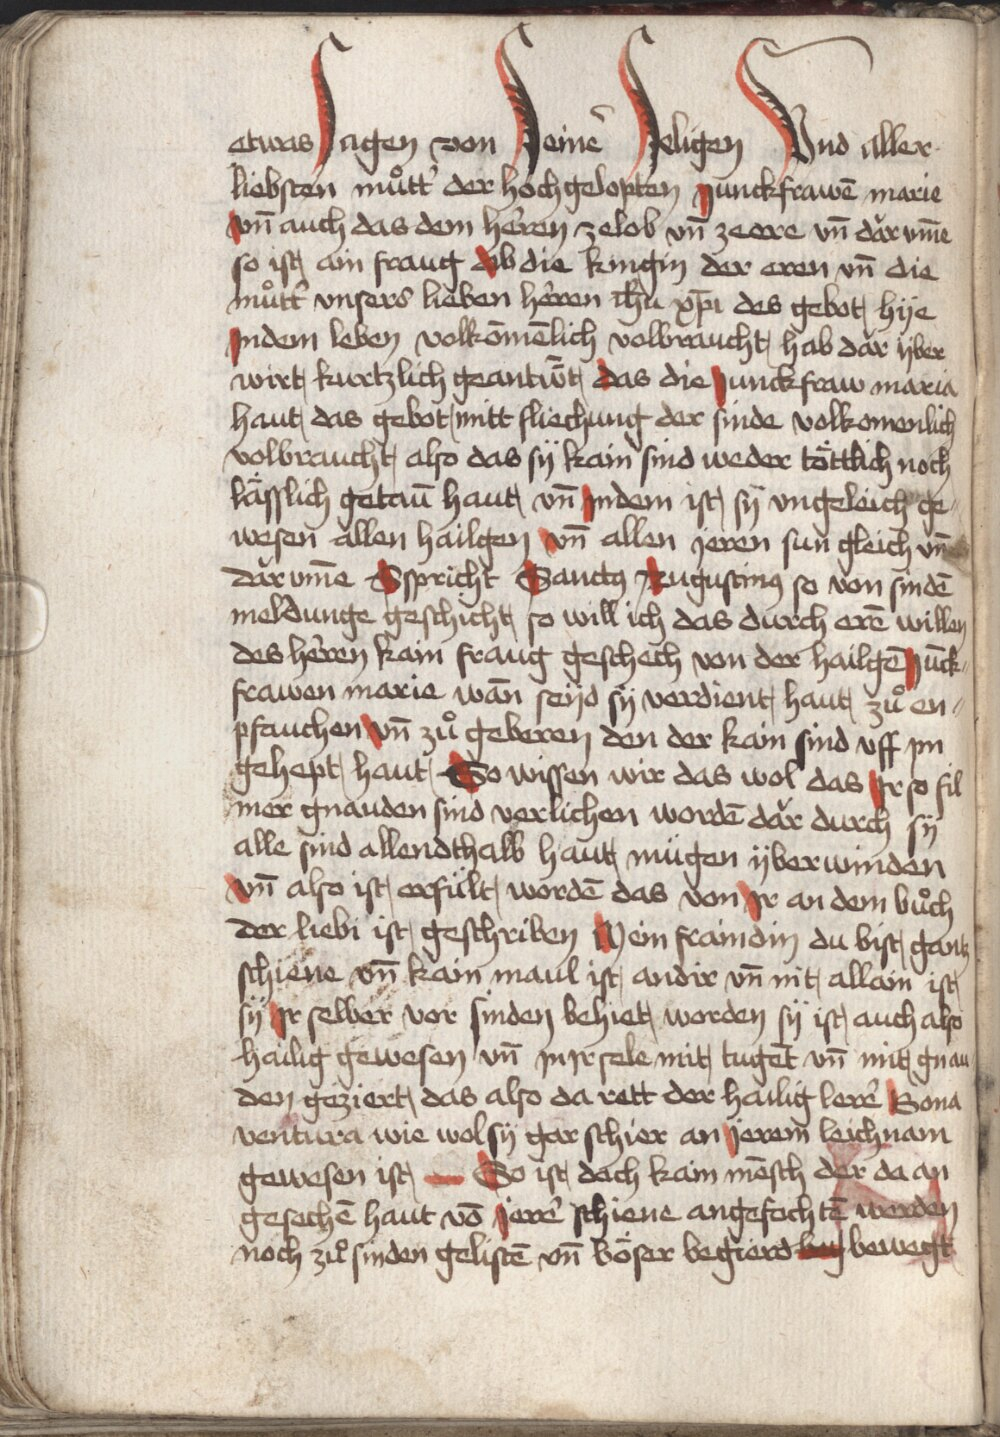 etwas Sagen von Seinē Seligen Vnd aller
liebsten mu̍ott' der hochgelopten Junckfrawē marie
vn̄ auch das dem heren zelob vn̄ zeere vn̄ dar vm̄e
so ist ain fraug ob die kingin der eren vn̄ die
mu̍ott' vnsers lieben heren ih̄u xp̄i des gebot hije
Indem leben volkōmēlich volbraucht hab dar ÿber
wirt kurtzlich geantw̄t das die Junckfraw maria
haut das gebot mitt fliechung der sinde volkomenlich
volbraucht also das sÿ kain sind weder töttlich noch
lässlich getaū haut vn̄ Indem ist sÿ vngeleich ge-
wesen allen hailgen vn̄ allen jeren sun gleich vn̄
dar vm̄e Spricht Sanctus Augustinus so von sindē
meldunge geschicht so will ich das durch erē willen
des heren kain fraug geschech von der hailgē Jūck-
frawen marie wān seijd sÿ verdient haut zu̍o en-
pfauchen vn̄ zu̍o geberen den der kain sind vff im
gehept haut So wissen wir das wol das Ir so fil
mer gnauden sind verlichen wordē dar durch sÿ
alle sind allendthalb haut mügen ÿberwinden
vn̄ also ist erfült wordē das von Ir an dem bu̍och
der liebi ist geschriben Mein fraindin du bist gantz
schiene vn̄ kain maul ist andir vn̄ nit allain ist
sÿ Ir selber vor sinden behiet worden sÿ ist auch also
hailig gewesen vn̄ in Ir sele mit tuget vn̄ mit gnau
den geziert das also da rett der hailig lerē Bona
ventura wie wol sÿ gar schier an jerem leichnam
gewesen ist So ist doch kain mēsch der da an
gesechē haut vō jerē schiene angefochtē werden
noch zu̍o sinden gelistē vn̄ böser begierd bewegt